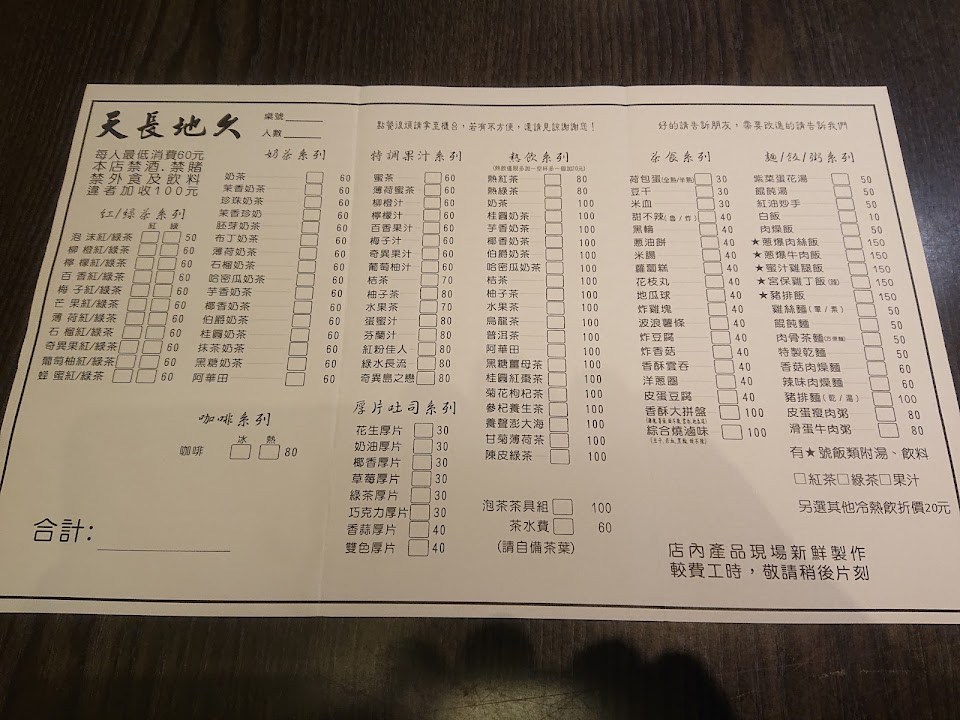 天長地久
桌號
人數
點餐後煩請拿至櫃台，若有不方便，還請見諒謝謝您！
好的請告訴朋友，需要改進的請告訴我們
每人最低消費60元
本店禁酒.禁賭
禁外食及飲料
違者加收100元
紅/綠茶系列
紅 綠
泡沫紅/綠茶 50
柳橙紅/綠茶 60
檸檬紅/綠茶 60
百香紅/綠茶 60
梅子紅/綠茶 60
芒果紅/綠茶 60
薄荷紅/綠茶 60
石榴紅/綠茶 60
奇異果紅/綠茶 60
葡萄柚紅/綠茶 60
蜂蜜紅/綠茶 60
奶茶系列
奶茶 60
茉香奶茶 60
珍珠奶茶 60
茉香珍奶 60
胚芽奶茶 60
布丁奶茶 60
薄荷奶茶 60
石榴奶茶 60
哈密瓜奶茶 60
芋香奶茶 60
椰香奶茶 60
伯爵奶茶 60
桂圓奶茶 60
抹茶奶茶 60
黑糖奶茶 60
阿華田 60
咖啡系列
冰 熱
咖啡 80
合計:
特調果汁系列
蜜茶 60
薄荷蜜茶 60
柳橙汁 60
檸檬汁 60
百香果汁 60
梅子汁 60
奇異果汁 60
葡萄柚汁 60
桔茶 70
柚子茶 80
水果茶 70
蛋蜜汁 80
芬蘭汁 80
紅粉佳人 80
綠水長流 80
奇異島之戀 80
厚片吐司系列
花生厚片 30
奶油厚片 30
椰香厚片 30
草莓厚片 30
綠茶厚片 30
巧克力厚片 30
香蒜厚片 40
雙色厚片 40
熱飲系列
熱紅茶 80
熱綠茶 80
奶茶 100
桂圓奶茶 100
芋香奶茶 100
椰香奶茶 100
伯爵奶茶 100
哈密瓜奶茶 100
桔茶 100
柚子茶 100
水果茶 100
烏龍茶 100
普洱茶 100
阿華田 100
黑糖薑母茶 100
桂圓紅棗茶 100
菊花枸杞茶 100
參杞養生茶 100
養聲澎大海 100
甘菊薄荷茶 100
陳皮綠茶 100
泡茶茶具組 100
茶水費 60
(請自備茶葉)
茶食系列
荷包蛋(全熟/半熟) 30
豆干 30
米血 30
甜不辣(魯/炸) 40
黑輪 40
蔥油餅 40
米腸 40
蘿蔔糕 40
花枝丸 40
地瓜球 40
炸雞塊 40
波浪薯條 40
炸豆腐 40
炸香菇 40
香酥雲吞 40
洋蔥圈 40
皮蛋豆腐 40
香酥大拼盤 100
綜合燒滷味 100
麵/飯/粥系列
紫菜蛋花湯 50
餛飩湯 50
紅油炒手 50
白飯 10
肉燥飯 50
★蔥爆肉絲飯 150
★蔥爆牛肉飯 150
★蜜汁雞腿飯 150
★宮保雞丁飯(辣) 150
★豬排飯 150
雞絲麵(葷/素) 50
餛飩麵 50
肉骨茶麵 50
特製乾麵 50
香菇肉燥麵 60
辣味肉燥麵 60
豬排麵(乾/湯) 100
皮蛋瘦肉粥 80
滑蛋牛肉粥 80
有★號飯類附湯、飲料
□紅茶□綠茶□果汁
另選其他冷熱飲折價20元
店內產品現場新鮮製作
較費工時，敬請稍後片刻